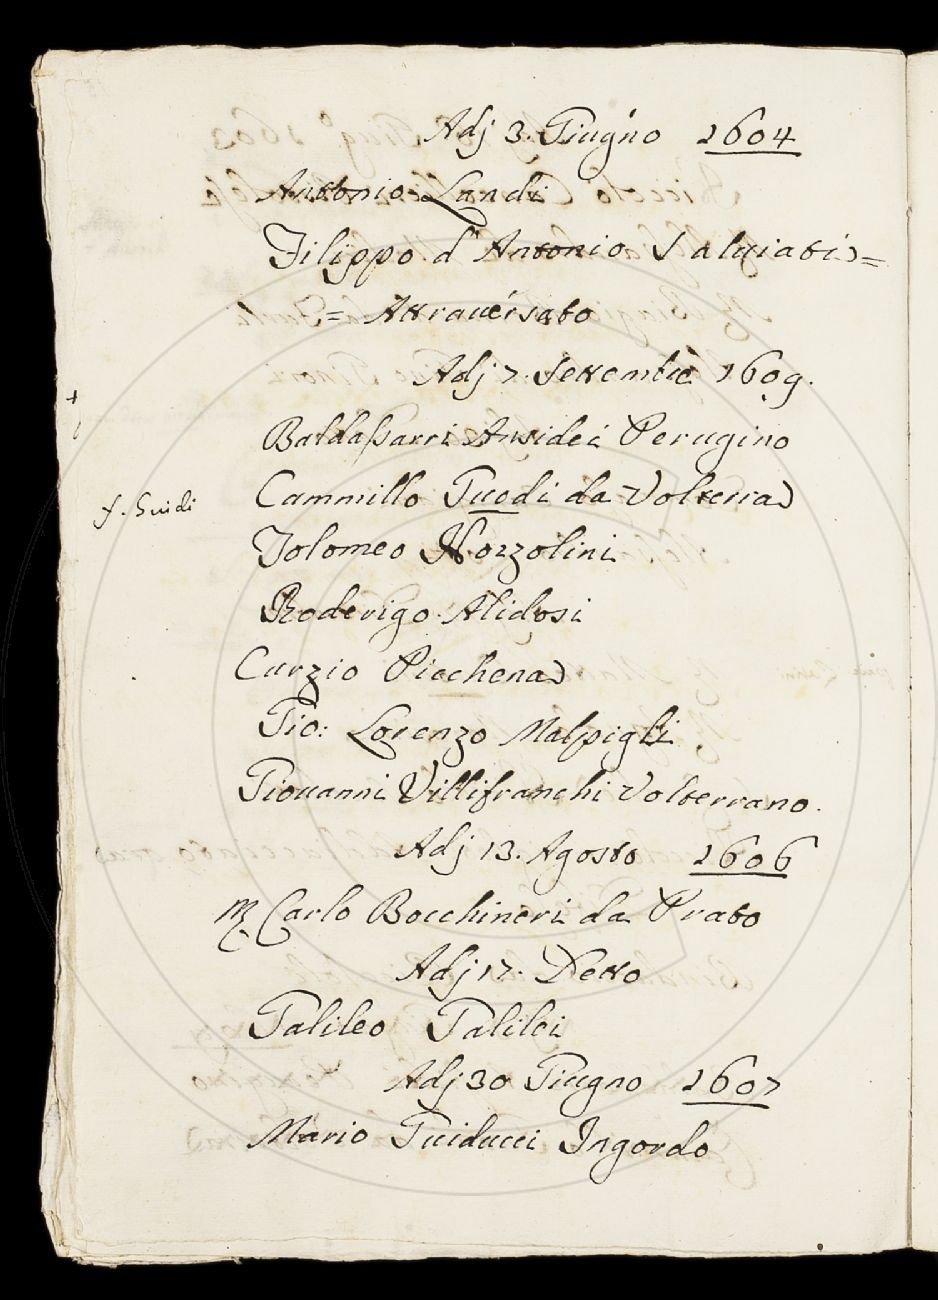 Adj 3. Giugno 1604
Antonio Landi
Filippo d'Antonio Salviati =
= Attrauersato
Adj 7. Settembre 1609.
Baldassarri Ansidei Perugino
f. Guidi
Cammillo Guodi da Volterra
Tolomeo Nozzolini
Roderigo Alidosi
Curzio Picchena
Gio: Lorenzo Malpigli
Giouanni Villifranchi Volterrano.
Adj 13. Agosto 1606
Carlo Bocchineri da Prato
Adj 17. Detto
Galileo Galilei
Adj 30 Giugno 1607
Mario Guiducci Ingordo